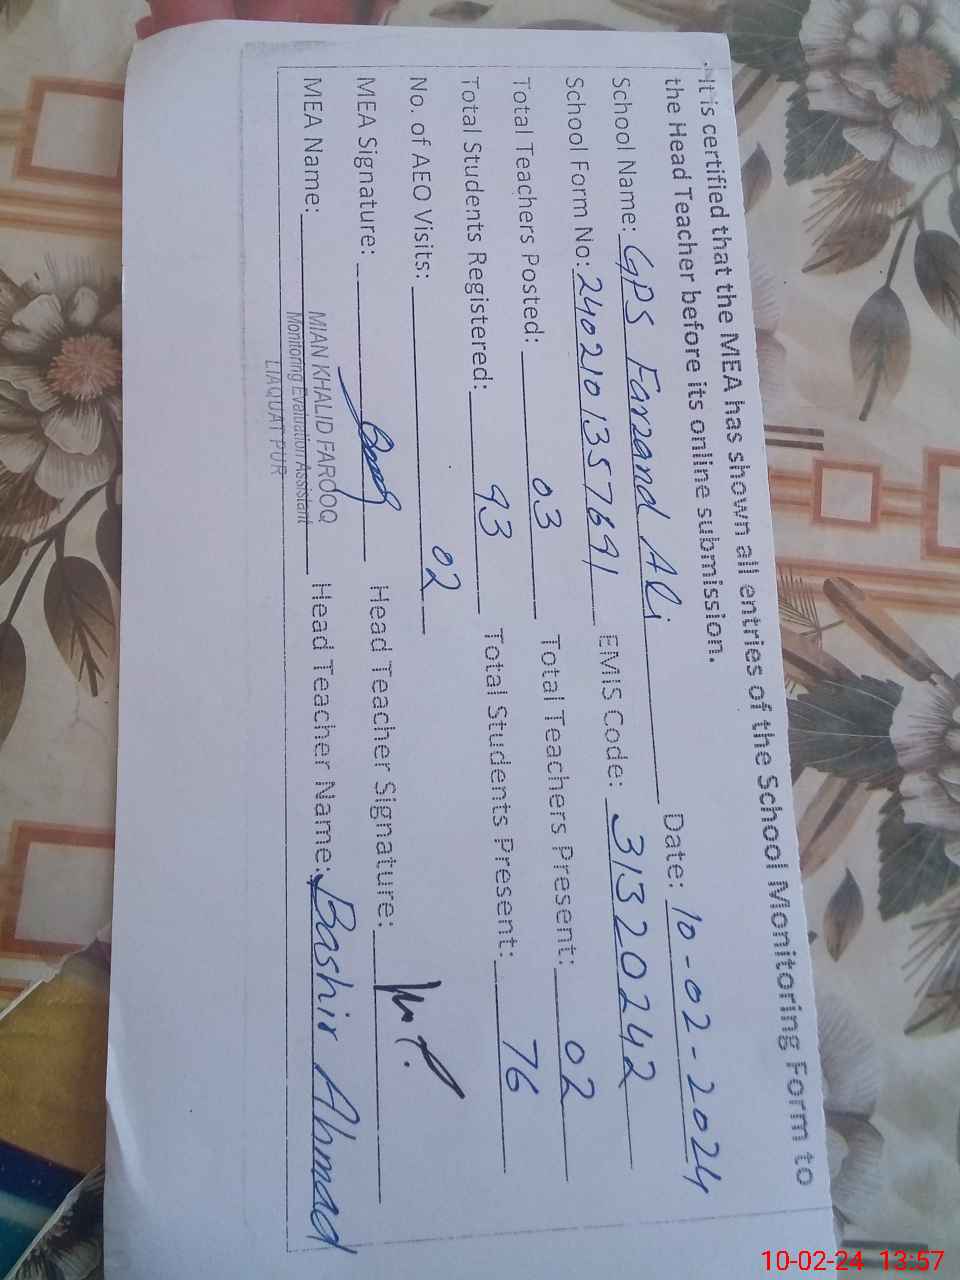 It is certified that the MEA has shown all entries of the School Monitoring Form to
the Head Teacher before its online submission.
School Name: GPS Farzand Ali Date: 10-02-2024
School Form No: 2402101357691 EMIS Code: 31320242
Total Teachers Posted: 03 Total Teachers Present: 02
Total Students Registered: 93 Total Students Present: 76
No. of AEO Visits: 02
MEA Signature: Head Teacher Signature:
MEA Name: MIAN KHALID FAROOQ Head Teacher Name: Bashir Ahmad
Monitoring Evaluation Assistant
LIAQUAT PUR
10-02-24 13:57